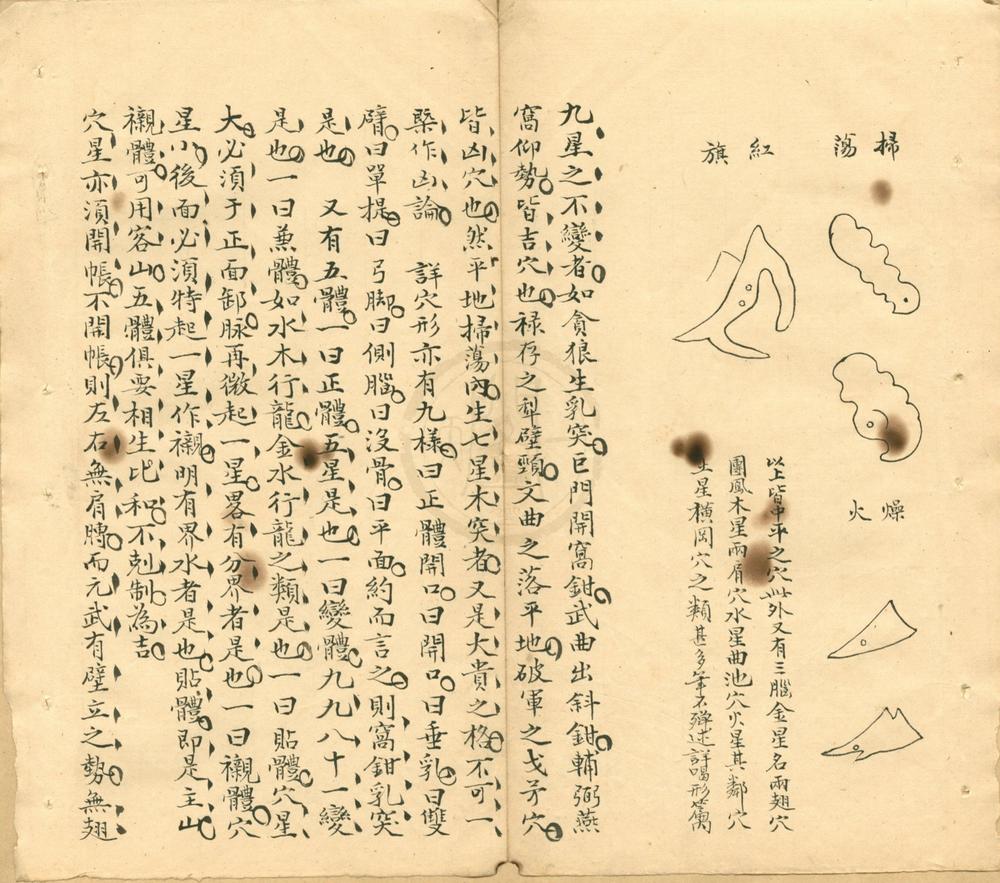 掃蕩
紅旗
燥火
以上皆中平之穴此外又有三腦金星名兩翅穴
團鳳木星兩肩穴水星曲池穴火星其鄰穴
土星橫岡穴之類甚多筆不殫述詳喝形篇
九星之不變者如貪狼生乳突巨門開窩鉗武曲出斜鉗輔弼燕
窩仰勢皆吉穴也祿存之犁壁頸文曲之落平地破軍之戈矛穴
皆凶穴也然平地掃蕩內生七星木突者又是大貴之格不可一
槩作凶論 詳穴形亦有九樣曰正體開口曰開口曰垂乳曰雙
臂曰單提曰弓脚曰側腦曰沒骨曰平面約而言之則窩鉗乳突
是也 又有五體一曰正體五星是也一曰變體九九八十一變
是也一曰兼體如水木行龍金水行龍之類是也一曰貼體穴星
大必須于正面卸脉再微起一星畧有分界者是也一曰襯體穴
星小後面必須特起一星作襯明有界水者是也貼體即是主山
襯體可用客山五體俱要相生比和不剋制為吉
穴星亦須開帳不開帳則左右無肩膊而元武有壁立之勢無翅